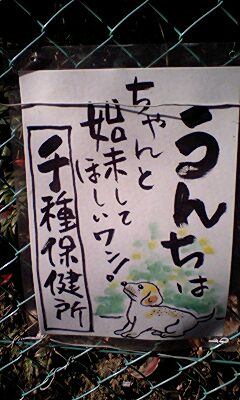 うんちは
ちゃんと
始末して
ほしいワン！
千種保健所